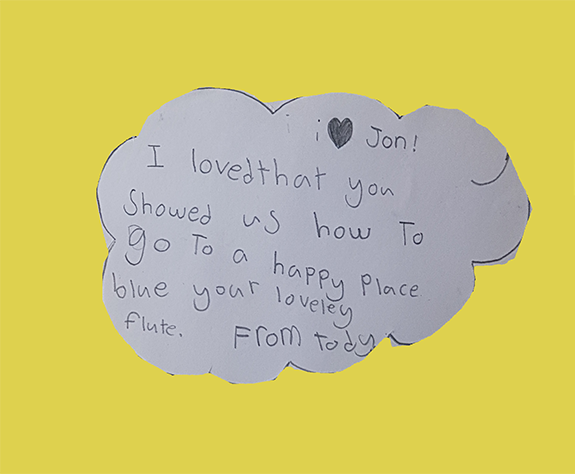 i ♥ Jon!
I lovedthat you
Showed us how To
go To a happy Place
blue your loveley
flute. From Tody